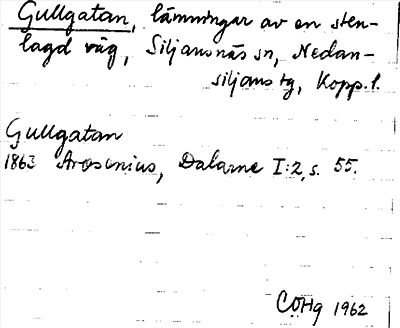 Gullgatan, lämningar av en sten-
lagd väg, Siljansnäs sn, Nedan-
siljans tg, Kopp. l.
Gullgatan
1863 Arosenius, Dalarne I:2, s. 55.
COHg 1962